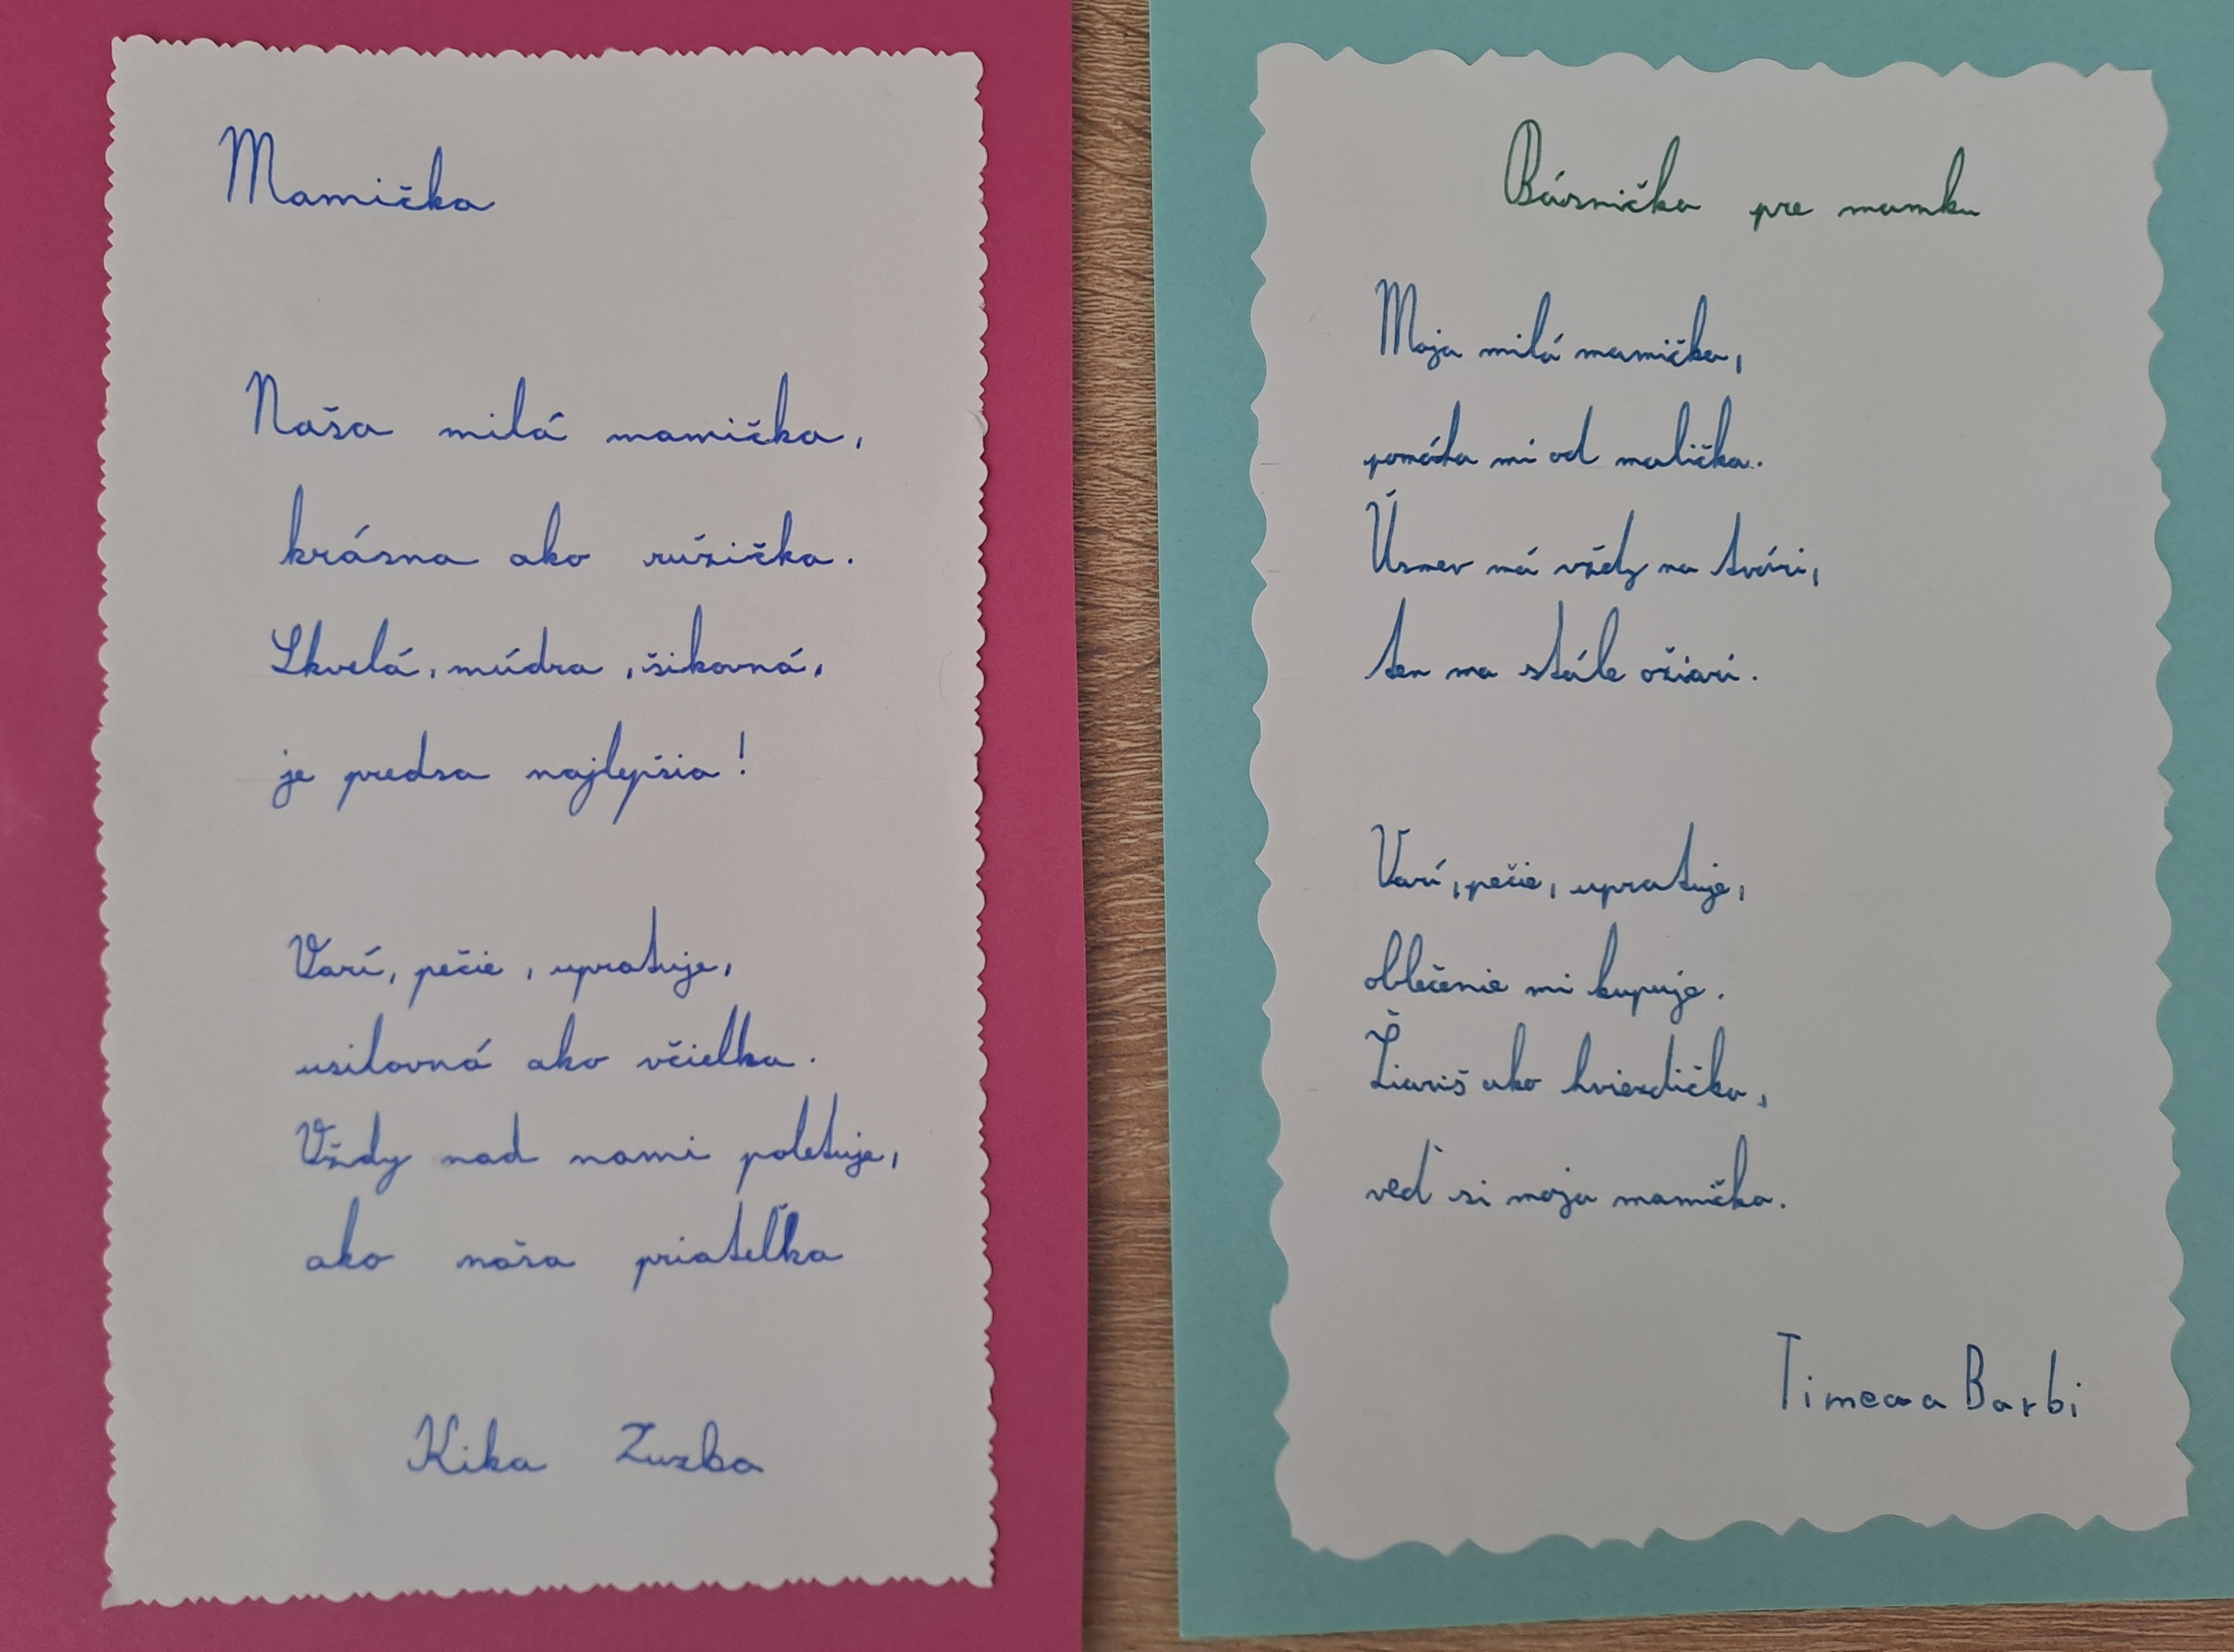 Mamička
Naša milá mamička,
krásna ako rúžička.
Skvelá, múdra, šikovná,
je predsa najlepšia!
Varí, pečie, upratuje,
usilovná ako včielka.
Vždy nad nami poletuje,
ako naša priateľka
Kika Zuzba
Básnička pre mamku
Moja milá mamička,
pomáha mi od malička.
Úsmev má vždy na tvári,
ten ma stále ožiari.
Varí, pečie, upratuje,
oblečenie mi kupuje.
Žiariš ako hviezdička,
veď si moja mamička.
Timea a Barbi